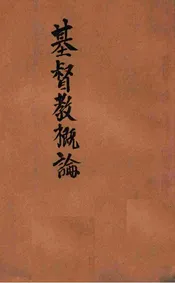 基督教概論